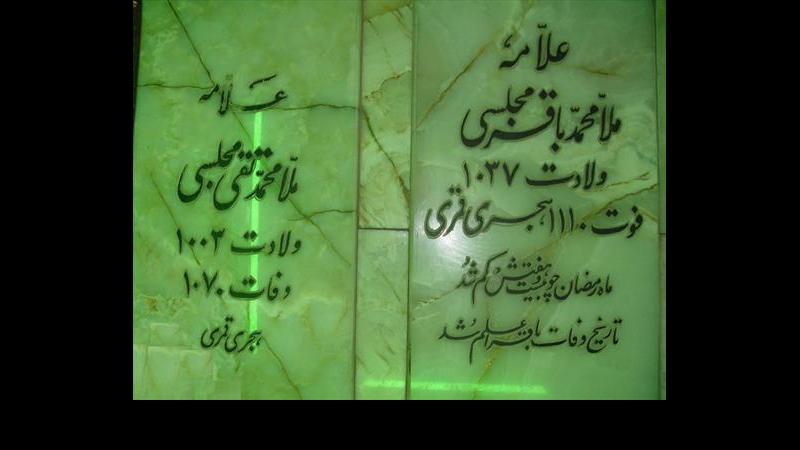 علامه
ملا محمد باقر مجلسی
ولادت ۱۰۳۷
فوت ۱۱۱۰ هجری قمری
ماه رمضان چو بیست و هفتش کم شد
تاریخ وفات باقر اعلم شد
علامه
ملا محمد تقی مجلسی
ولادت ۱۰۰۳
وفات ۱۰۷۰
هجری قمری